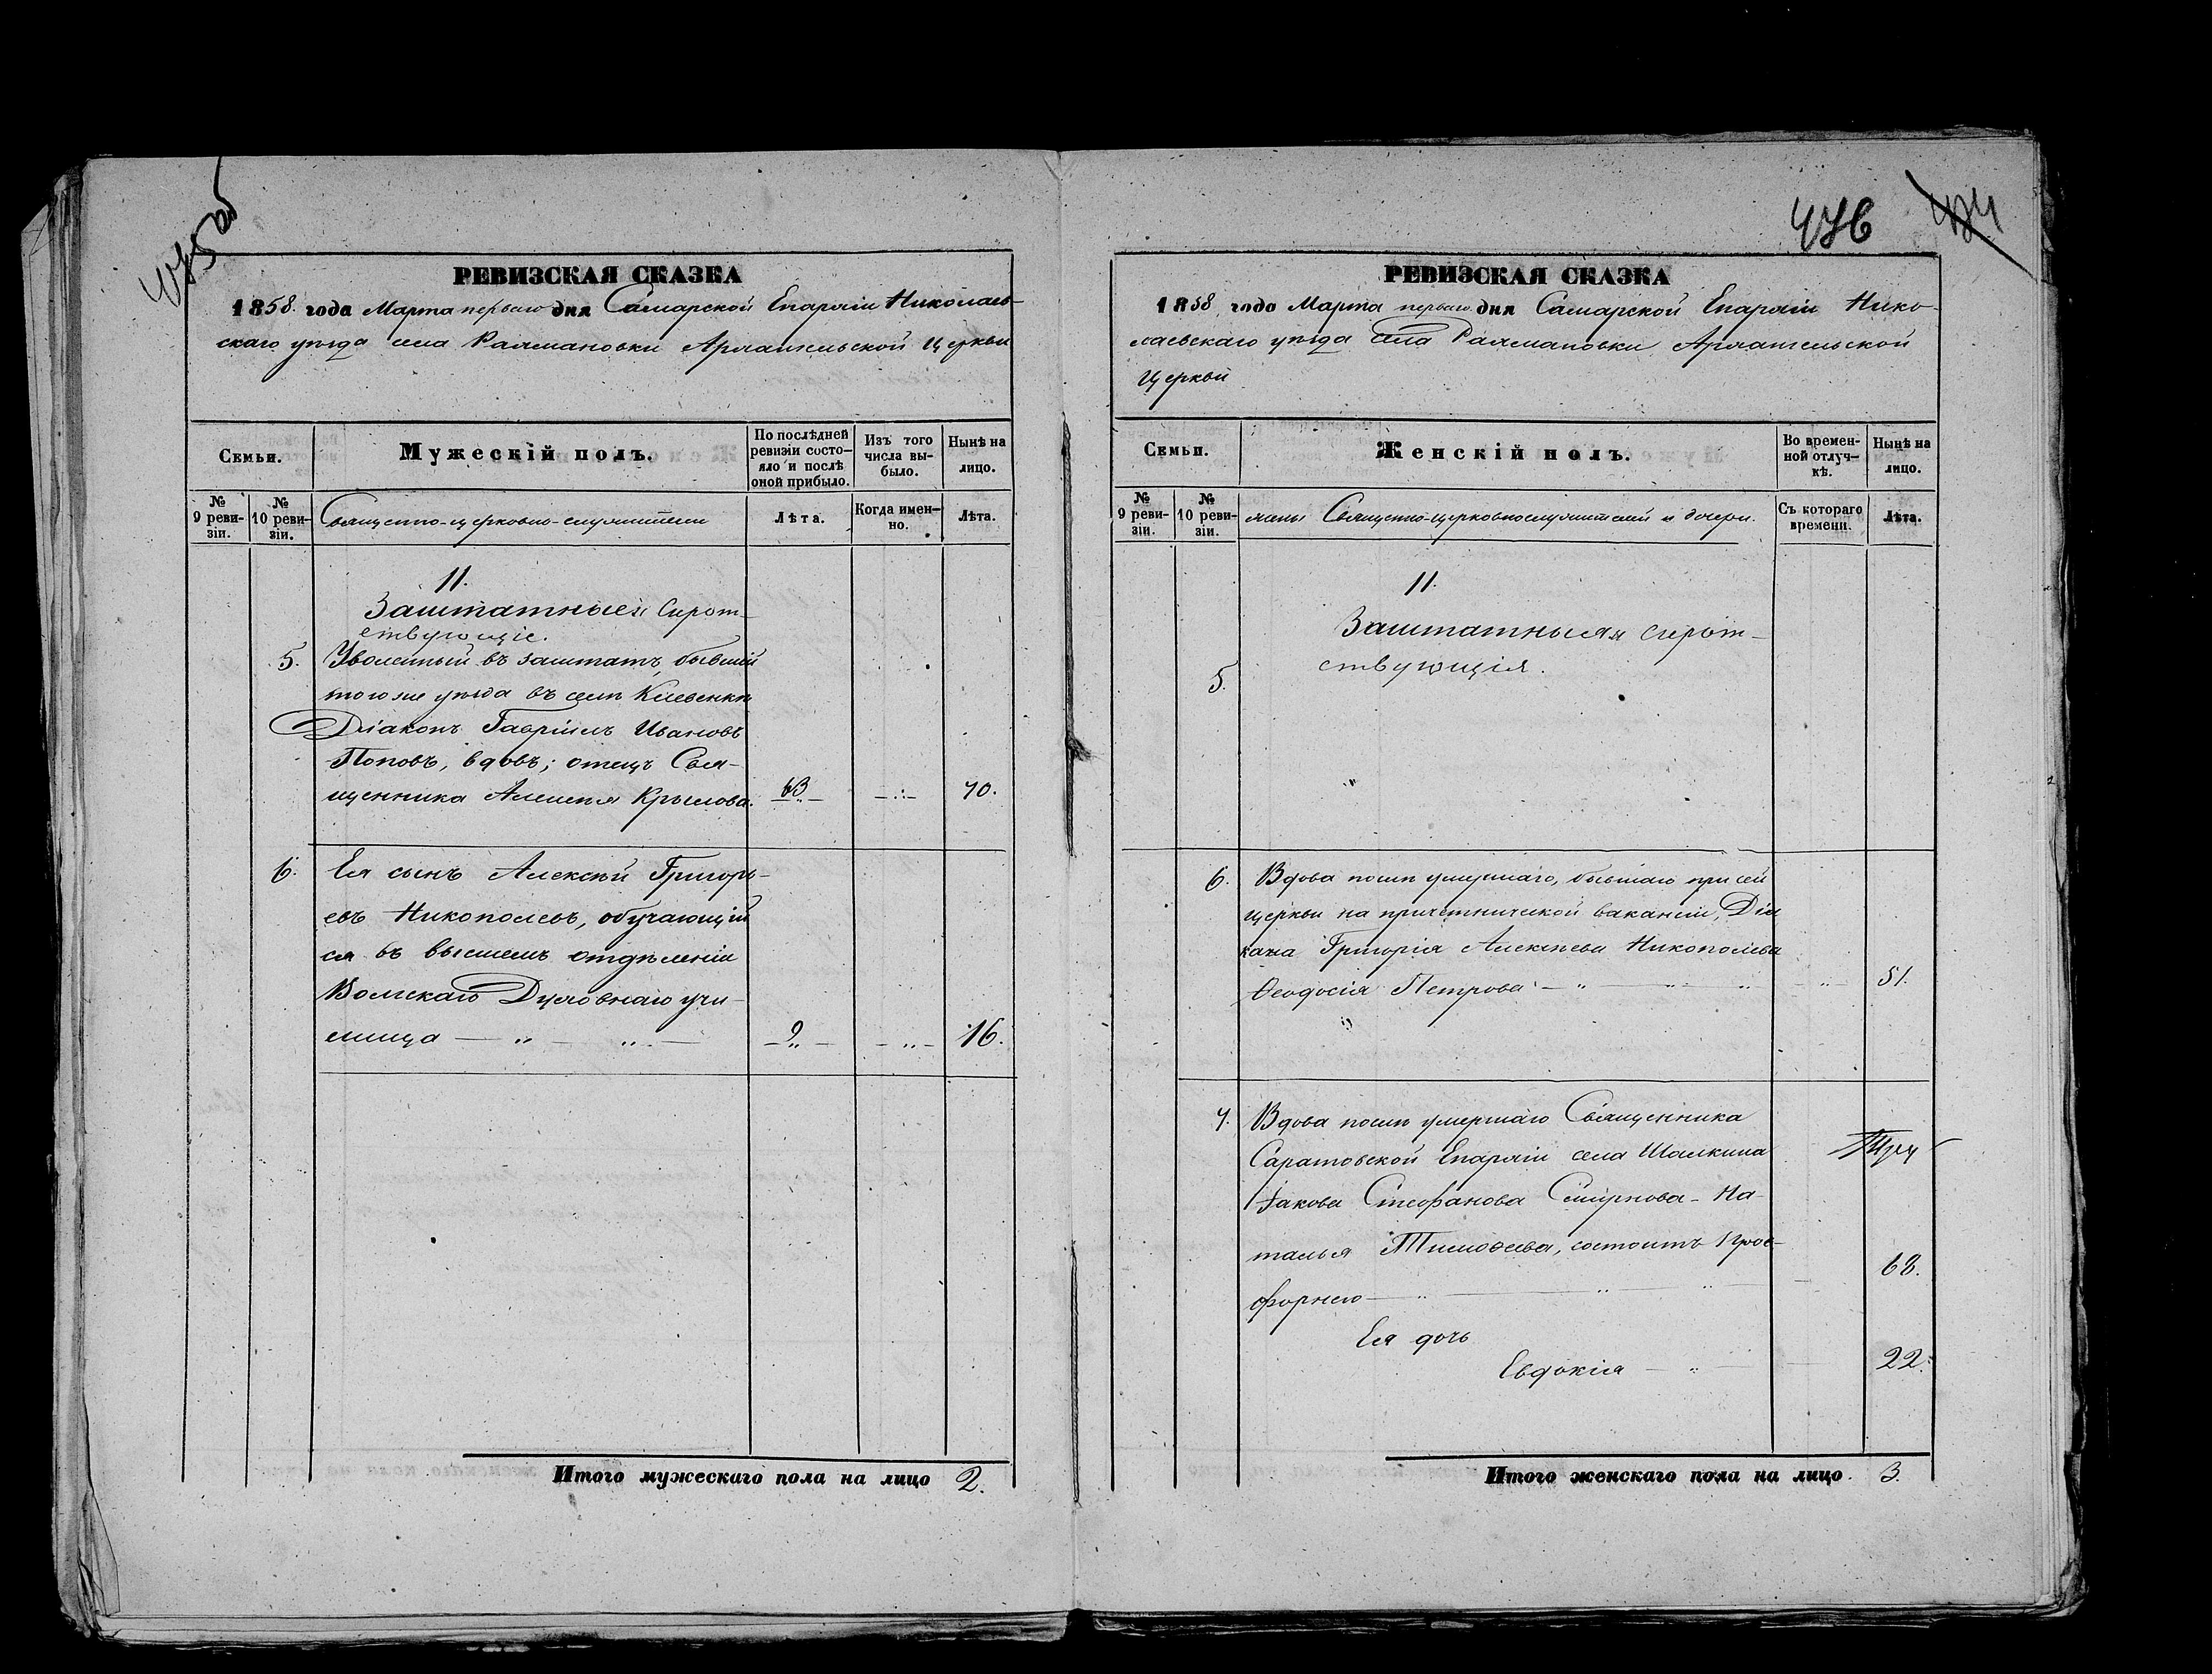 475 об
РЕВИЗСКАЯ СКАЗКА
1858. года Марта перваго дня Самарской Епархіи Николаев-
скаго уѣзда села Рахмановки Архангельской Церкви
Семьи.
Мужескій полъ.
По послѣдней
ревизіи состо-
яло и послѣ
оной прибыло.
Изъ того
числа вы-
было.
Нынѣ на
лицо.
№
9 реви-
зіи.
№
10 реви-
зіи.
Священно-церковно-служители
Лѣта.
Когда имен-
но.
Лѣта.
II.
Заштатные и Сирот-
ствующіе.
5. Уволенный въ заштатъ, бывшій
того же уѣзда въ селѣ Клевенкѣ
Діаконъ Гавріилъ Ивановъ
Поповъ, вдовъ; отецъ Свя-
щенника Алексѣя Крылова. 63 70.
6. Ея сынъ Алексѣй Григорь-
евъ Никополевъ, обучающій
ся въ высшемъ отдѣленіи
Волжскаго Духовнаго учи-
лища 9 16.
Итого мужескаго пола на лицо 2.
476 474
РЕВИЗСКАЯ СКАЗКА
1858 года Марта перваго дня Самарской Епархіи Нико-
лаевскаго уѣзда села Рахмановки Архангельской
Церкви
Семьи.
Женскій полъ.
Во времен-
ной отлуч-
кѣ.
Нынѣ на
лицо.
№
9 реви-
зіи.
№
10 реви-
зіи.
жены Священно-церковнослужителей и дочери.
Съ котораго
времени.
Лѣта.
II.
Заштатныя и сирот-
ствующія.
5.
6. Вдова послѣ умершаго, бывшаго при сей
церкви на причетнической вакансіи, Діа
кона Григорія Алексѣева Никополева
Ѳеодосія Петрова 51.
7. Вдова послѣ умершаго Священника
Саратовской Епархіи села Шалкина
Іакова Стефанова Смирнова - На-
талья Тимоѳеева, состоитъ Прос-
форнею 68.
Ея дочь
Евдокія 22.
Итого женскаго пола на лицо. 3.